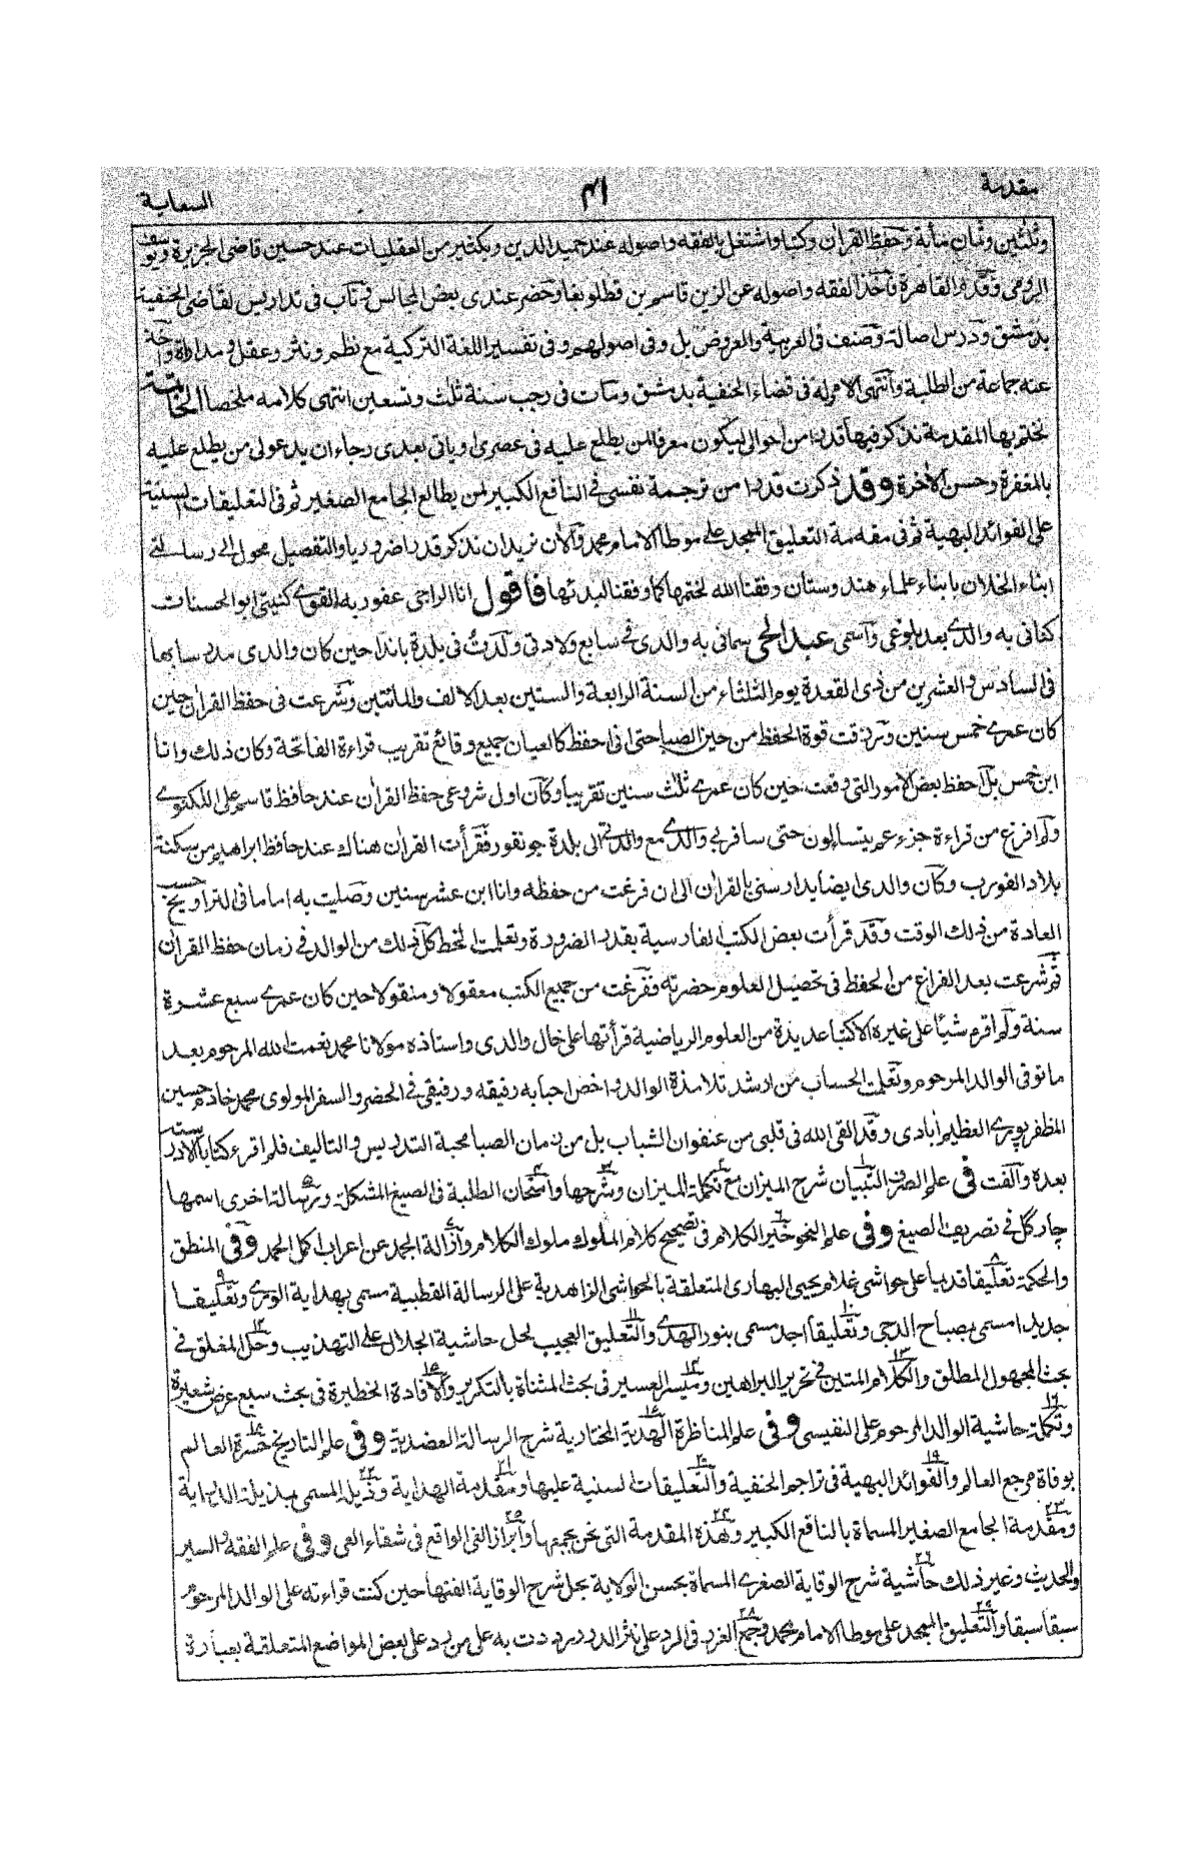 مقدمة
٤١
السعاية
وثلثين وثمان مائة وحفظ القرآن وكتبا واشتغل بالفقه واصوله عند حميد الدين وبكثير من العقليات عند حسين قاضي الجزيرة ويوسف
الرومي وقدم القاهرة فاخذ الفقه واصوله عن الزين قاسم بن قطلوبغا وحضر عندي بعض المجالس ناب في تداريس لقاضي الحنفية
بدمشق ودرس اصالة وصنف في العربية والعروض بل وفي اصولهم وفي تفسير اللغة التركية مع نظم ونثر وعقل ومداراة واخذ
عنه جماعة من الطلبة وانتهى الامر له في قضاء الحنفية بدمشق ومات في رجب سنة ثلث وتسعين انتهى كلامه ملخصا الخاتمة
نختم بها المقدمة نذكر فيها قدرا من احوالي ليكون معرفا لمن يطلع عليه في عصري او ياتي بعدي رجاء ان يدعو لي من يطلع عليه
بالمغفرة وحسن الآخرة وقد ذكرت قدرا من ترجمة نفسي في النافع الكبير لمن يطالع الجامع الصغير ثم في التعليقات السنية
على الفوائد البهية ثم في مقدمة التعليق الممجد على موطا الامام محمد والآن نريد ان نذكر قدرا ضروريا والتفصيل محول الى رسالتي
ابناء الخلان بابناء علماء هندوستان وفقنا الله لختمها كما وفقنا لبدئها فاقول انا الراجي عفو ربه القوي كنيتي ابو الحسنات
كناني به والدي بعد بلوغي واسمي عبد الحي سماني به والدي في سابع ولادتي ولدت في بلدة باندا حين كان والدي مدرسا بها
في السادس والعشرين من ذي القعدة يوم الثلثاء من السنة الرابعة والستين بعد الالف والمائتين وشرعت في حفظ القرآن حين
كان عمري خمس سنين ورزقت قوة الحفظ من حين الصبا حتى اني احفظ كالعيان جميع وقائع تقريب قراءة الفاتحة وكان ذلك وانا
ابن خمس بل احفظ بعض الامور التي وقعت حين كان عمري ثلث سنين تقريبا وكان اول شروعي حفظ القرآن عند حافظ قاسم علي اللكنوي
ولم افرغ من قراءة جزء عم يتسائلون حتى سافر بي والدي مع والدتي الى بلدة جونفور فقرأت القرآن هناك عند حافظ ابراهيم من سكنة
بلاد الفورب وكان والدي ايضا يدارسني بالقرآن الى ان فرغت من حفظه وانا ابن عشر سنين وصليت به اماما في التراويح حسب
العادة من ذلك الوقت وقد قرأت بعض الكتب الفارسية بقدر الضرورة وتعلمت الخط كل ذلك من الوالد في زمان حفظ القرآن
ثم شرعت بعد الفراغ من الحفظ في تحصيل العلوم حضرته ففرغت من جميع الكتب معقولا ومنقولا حين كان عمري سبع عشرة
سنة ولم اقرم شيئا على غيره الا كتبا عديدة من العلوم الرياضية قرأتها على خال والدي واستاذه مولانا محمد نعمت الله المرحوم بعد
ما توفي الوالد المرحوم وتعلمت الحساب من ارشد تلامذة الوالد واخص احبابه رفيقه ورفيقي في الحضر والسفر المولوي محمد خادم حسين
المظفرپوري العظيم آبادي وقد القى الله في قلبي من عنفوان الشباب بل من زمان الصبا محبة التدريس والتاليف فلم اقرء كتابا الا درسته
بعده والفت في علم الصرف التبيان شرح الميزان مع تكملة الميزان وشرحها وامتحان الطلبة في الصيغ المشكلة ورسالة اخرى اسمها
چارگل في تصريف الصيغ وفي علم النحو خير الكلام في تصحيح كلام الملوك ملوك الكلام وازالة الجمد عن اعراب اكمل الحمد وفي المنطق
والحكمة تعليقا قديما على حواشي غلام يحيى البهاري المتعلقة بالحواشي الزاهدية على الرسالة القطبية مسمى بهداية الورى وتعليقا
جديدا مسمى بمصباح الدجى وتعليقا اجد مسمى بنور الهدى والتعليق العجيب لحل حاشية الجلال على التهذيب وحل المغلق في
بحث المجهول المطلق والكلام المتين في تحرير البراهين وميسر العسير في بحث المثناة بالتكرير والافادة الخطيرة في بحث سبع عرض شعيرة
وتكملة حاشية الوالد المرحوم على النفيسي وفي علم المناظرة الهدية المختارية شرح الرسالة العضدية وفي علم التاريخ حسرة العالم
بوفاة مرجع العالم والفوائد البهية في تراجم الحنفية والتعليقات السنية عليها ومقدمة الهداية وذيله المسمى بمذيلة الدراية
ومقدمة الجامع الصغير المسماة بالنافع الكبير وهذه المقدمة التي نحن بجمعها وابراز الغي الواقع في شفاء العي وفي علم الفقه والسير
والحديث وغير ذلك حاشية شرح الوقاية الصغرى المسماة بحسن الولاية بحل شرح الوقاية الفتها حين كنت قراءته على الوالد المرحوم
سبقا سبقا والتعليق الممجد على موطا الامام محمد وجمع الغرر في الرد على نثر الدرر رددت به على من رد على بعض المواضع المتعلقة بعبارة